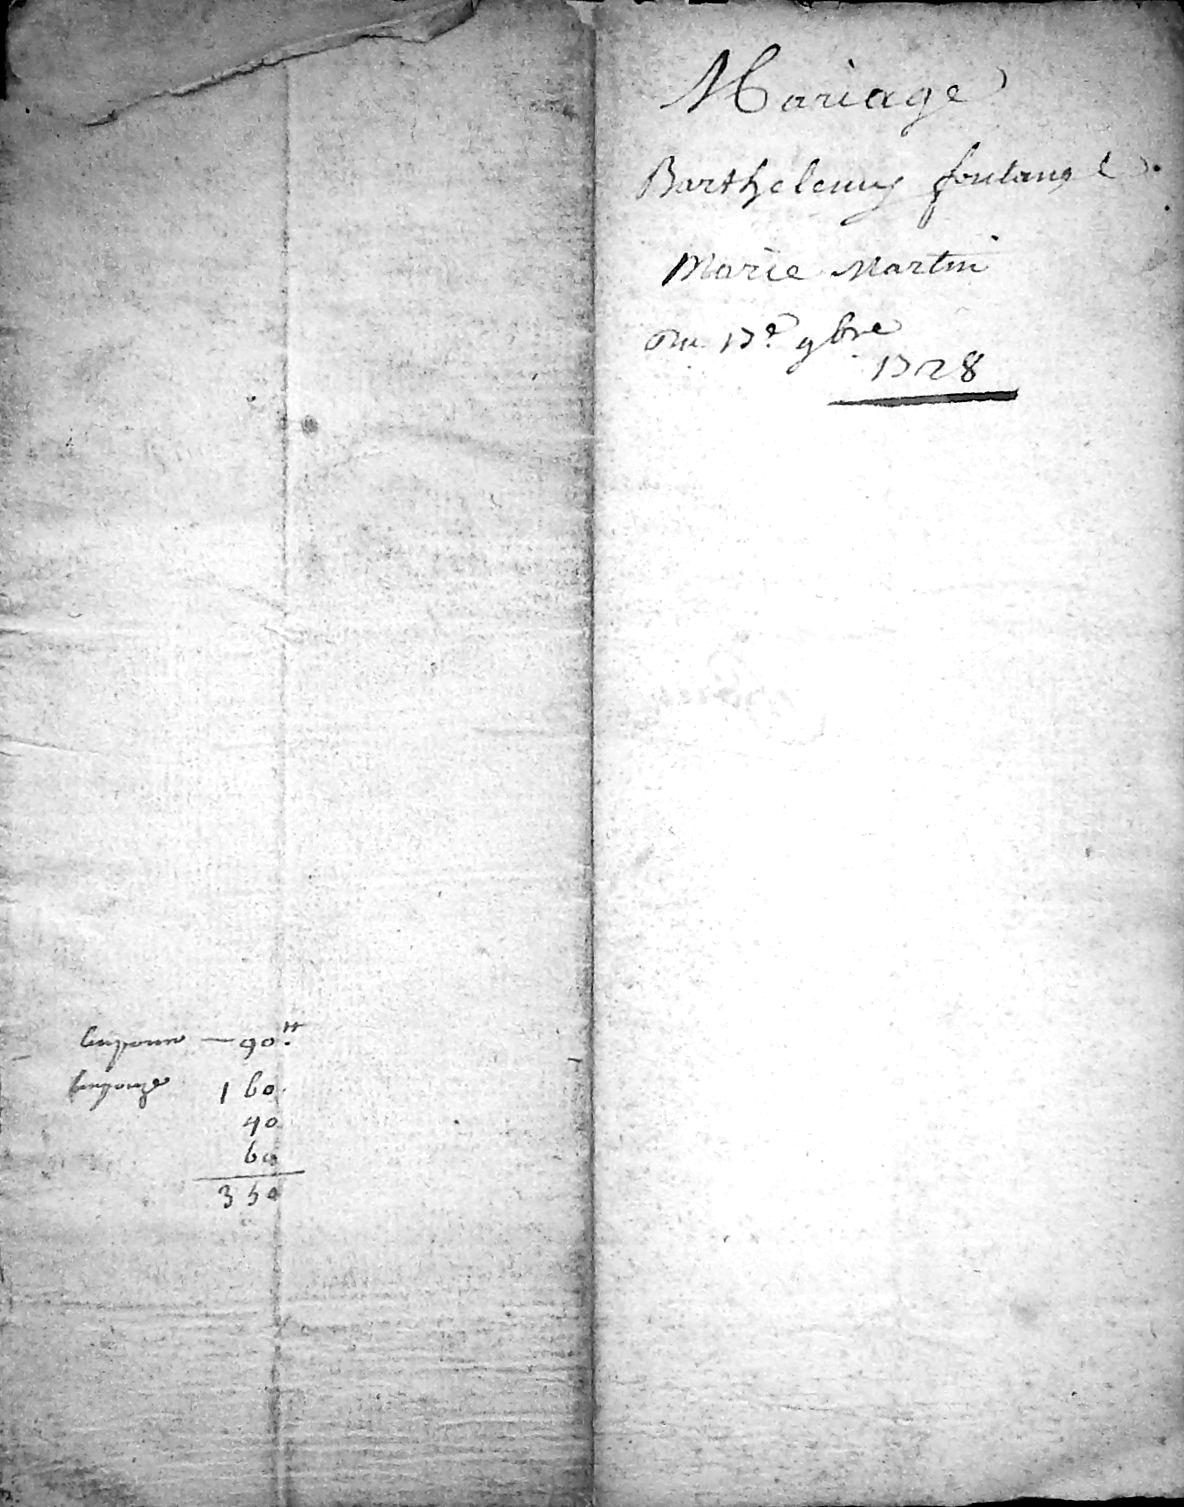 Mariage
Barthelemy fontange
Marie Martin
Du 17e 9bre
1728
90tt
160
40
60
350